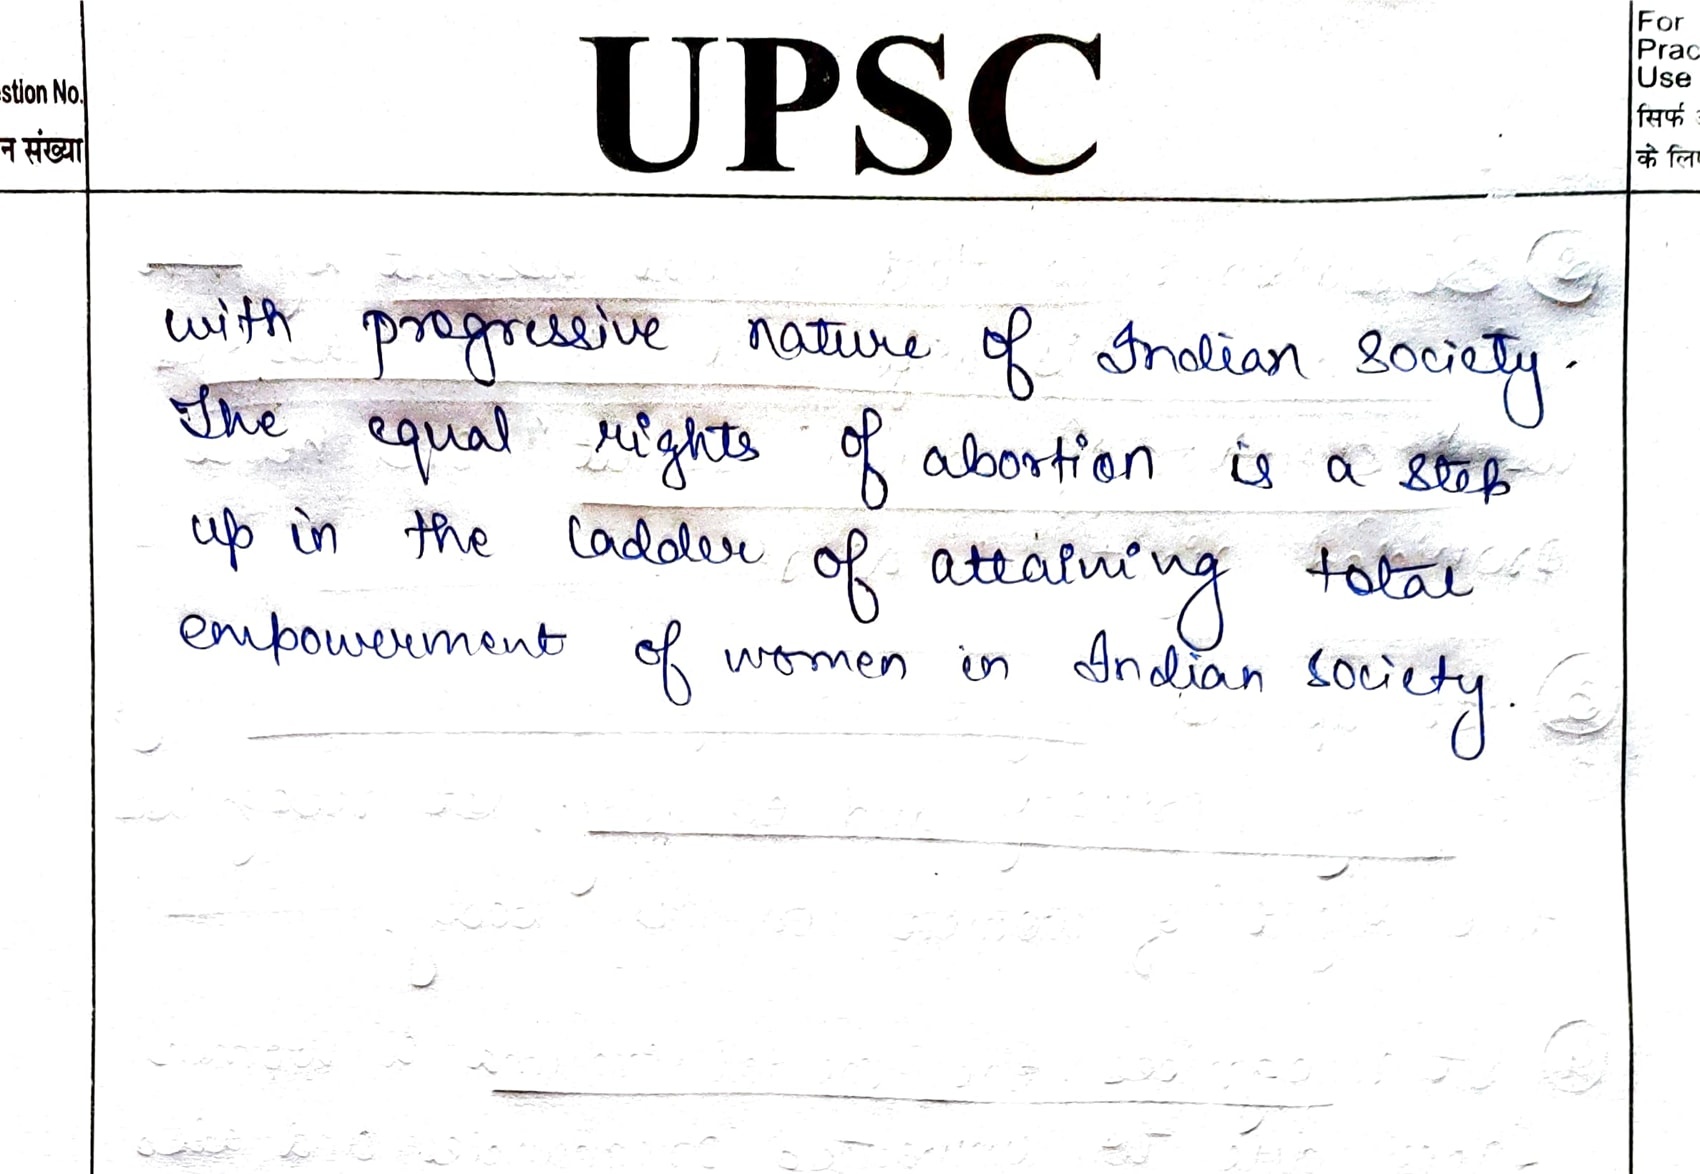 UPSC
stion No.
न संख्या
For
Prac
Use
सिर्फ
के लि
with progressive nature of Indian society.
The equal rights of abortion is a step
up in the ladder of attaining total
empowerment of women in Indian society.